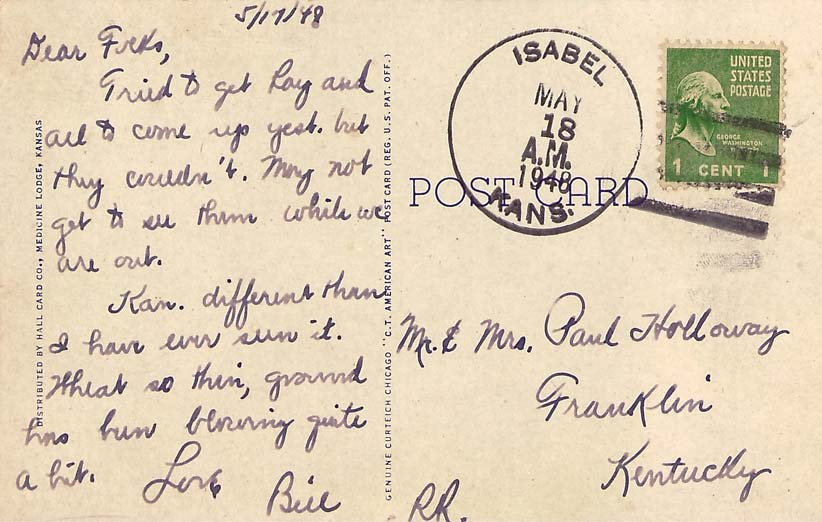 5/17/48
Dear Folks,
Tried to get Ray and
all to come up yest. but
they couldn't. May not
get to see them while we
are out.
Kan. different than
I have ever seen it.
Wheat so thin, ground
has been blowing quite
a bit.
Love
Bill
DISTRIBUTED BY HALL CARD CO., MEDICINE LODGE, KANSAS
GENUINE CURTEICH CHICAGO "C.T. AMERICAN ART" POST CARD (REG. U.S. PAT. OFF.)
POST CARD
ISABEL
MAY
18
A.M.
1948
KANS.
UNITED
STATES
POSTAGE
GEORGE
WASHINGTON
1 CENT 1
Mr. & Mrs. Paul Holloway
Franklin
Kentucky
RR.